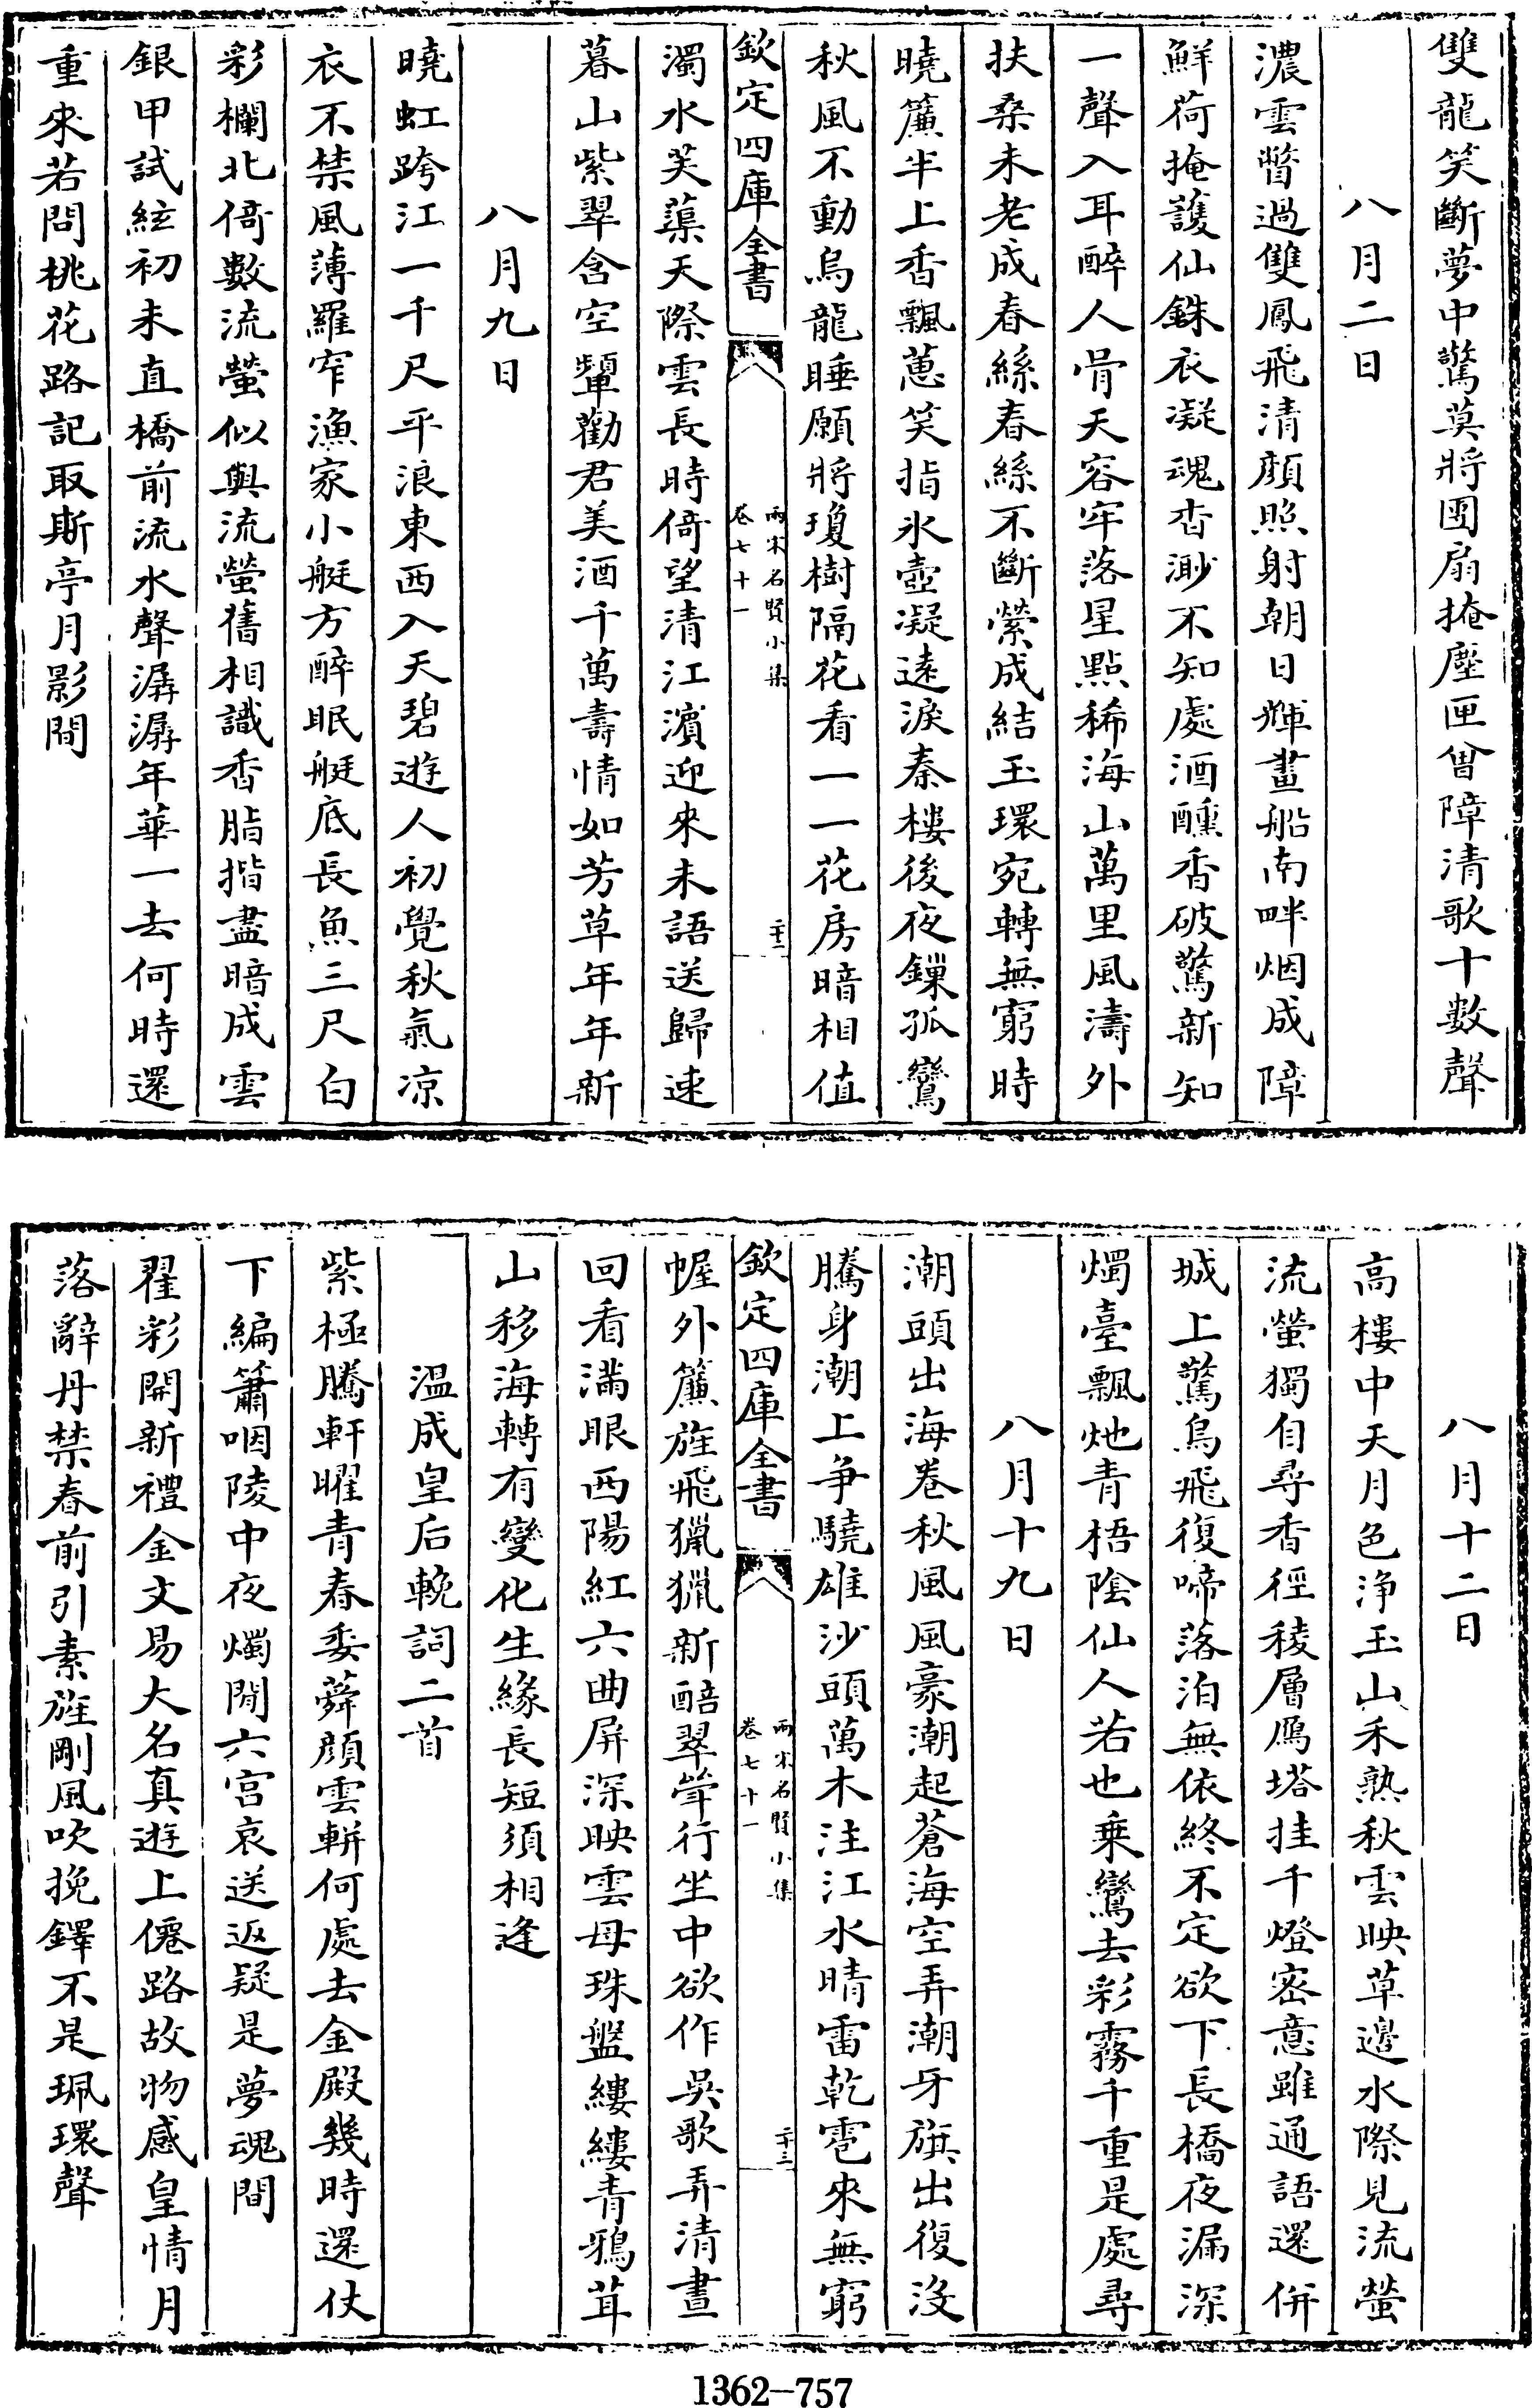 雙龍笑斷夢中驚莫將團扇掩塵匣曾障清歌十數聲
八月二日
濃雲瞥過雙鳳飛清顔照射朝日輝畫船南畔烟成障
鮮荷掩護仙銖衣凝魂杳渺不知處酒醺香破驚新知
一聲入耳醉人骨天容牢落星點稀海山萬里風濤外
扶桑未老成春絲春絲不斷縈成結玉環宛轉無窮時
曉簾半上香飄蔥笑指氷壺凝遠淚秦樓後夜鏁孤鸞
秋風不動烏龍睡願將瓊樹隔花看一一花房暗相值
欽定四庫全書
兩宋名賢小集
卷七十一
二十二
濁水芙蕖天際雲長時倚望清江濱迎來未語送歸速
暮山紫翠含空顰勸君美酒千萬壽情如芳草年年新
八月九日
曉虹跨江一千尺平浪東西入天碧遊人初覺秋氣凉
衣不禁風薄羅窄漁家小艇方醉眠艇底長魚三尺白
彩欄北倚數流螢似與流螢舊相識香脂揩盡暗成雲
銀甲試絃初未直橋前流水聲潺潺年華一去何時還
重來若問桃花路記取斯亭月影間
八月十二日
高樓中天月色浄玉山禾熟秋雲映草邊水際見流螢
流螢獨自尋香徑稜層鴈塔挂千燈密意雖通語還併
城上驚烏飛復啼落泊無依終不定欲下長橋夜漏深
燭臺飄灺青梧陰仙人若也乗鸞去彩霧千重是處尋
八月十九日
潮頭出海卷秋風風豪潮起蒼海空弄潮牙旗出復沒
騰身潮上争驍雄沙頭萬木注江水晴雷乾雹來無窮
欽定四庫全書
兩宋名賢小集
卷七十一
二十三
幄外簾旌飛獵獵新醅翠斝行坐中欲作吳歌弄清晝
回看滿眼西陽紅六曲屏深映雲母珠盤縷縷青鴉茸
山移海轉有變化生緣長短須相逢
温成皇后輓詞二首
紫極騰軒曜青春委蕣顔雲軿何處去金殿幾時還仗
下編簫咽陵中夜燭閒六宫哀送返疑是夢魂間
翟彩開新禮金文易大名真遊上僊路故物感皇情月
落辭丹禁春前引素旌剛風吹挽鐸不是珮環聲
1362-757